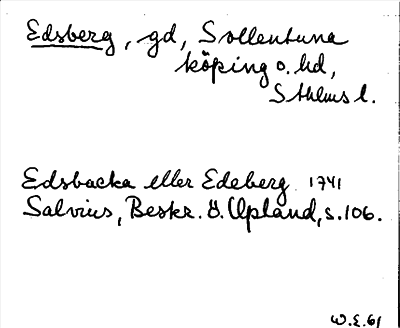 Edsberg, gd, Sollentuna
köping o. hd,
Sthlms l.
Edsbacka eller Edeberg 1741
Salvius, Beskr. ö. Upland, s. 106.
W.E. 61